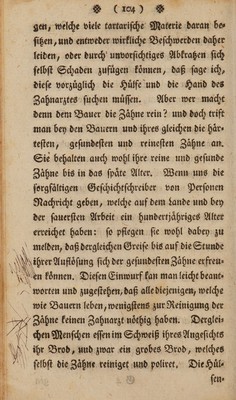 ( 104 )
gen, welche viele tartarische Materie daran be-
sitzen, und entweder wirkliche Beschwerden daher
leiden, oder durch unvorsichtiges Abkratzen sich
selbst Schaden zufügen können, daß sage ich,
diese vorzüglich die Hülfe und die Hand des
Zahnarztes suchen müssen. Aber wer macht
denn dem Bauer die Zähne rein? und doch trift
man bey den Bauern und ihres gleichen die här-
testen, gesundesten und reinesten Zähne an.
Sie behalten auch wohl ihre reine und gesunde
Zähne bis in das späte Alter. Wenn uns die
sorgfältigen Geschichtschreiber von Personen
Nachricht geben, welche auf dem Lande und bey
der sauersten Arbeit ein hundertjähriges Alter
erreichet haben: so pflegen sie wohl dabey zu
melden, daß dergleichen Greise bis auf die Stunde
ihrer Auflösung sich der gesundesten Zähne erfreu-
en können. Diesen Einwurf kan man leicht beant-
worten und zugestehen, daß alle diejenigen, welche
wie Bauern leben, wenigstens zur Reinigung der
Zähne keinen Zahnarzt nöthig haben. Dergleі-
chen Menschen essen im Schweiß ihres Angesichts
ihr Brod, und zwar ein grobes Brod, welches
selbst die Zähne reiniget und poliret. Die Hül-
sen-